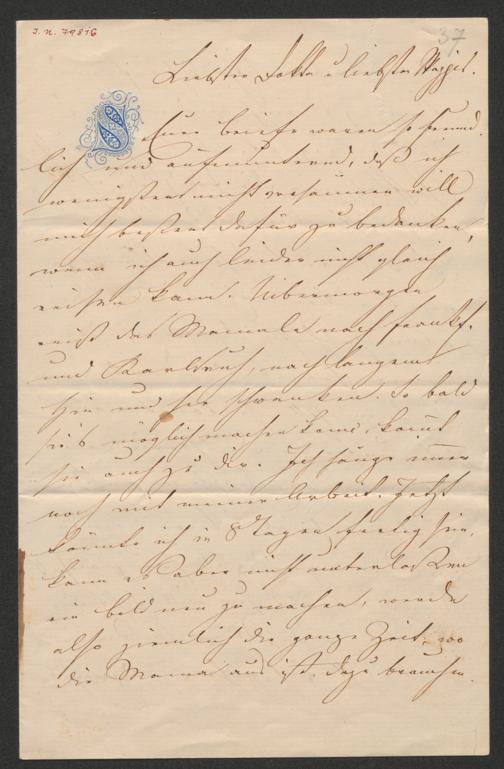 J. N. 79816
37
Liebster Dokta u liebster
Eure briefe waren so freund-
lich und aufmunternd, daß ich
wenigstens nicht versäumen will
mich bestens dafür zu bedanken,
wenn ich auch leider nicht gleich
reisen kann. Uibermorgen
reist das Mamale nach Frankf.
und Karlsruh, nach langem
hin und her schwanken. So bald
sie's möglich machen kann, kömt
sie auch zu dir. Ich hänge imer
noch mit meiner Arbeit. Jetzt
könnte ich in 8 Tagen fertig sein,
kann es aber nicht unterlassen
ein bild neu zu machen, werde
also ziemlich die ganze Zeit, wo
die Mama aus ist, dazu brauchen.